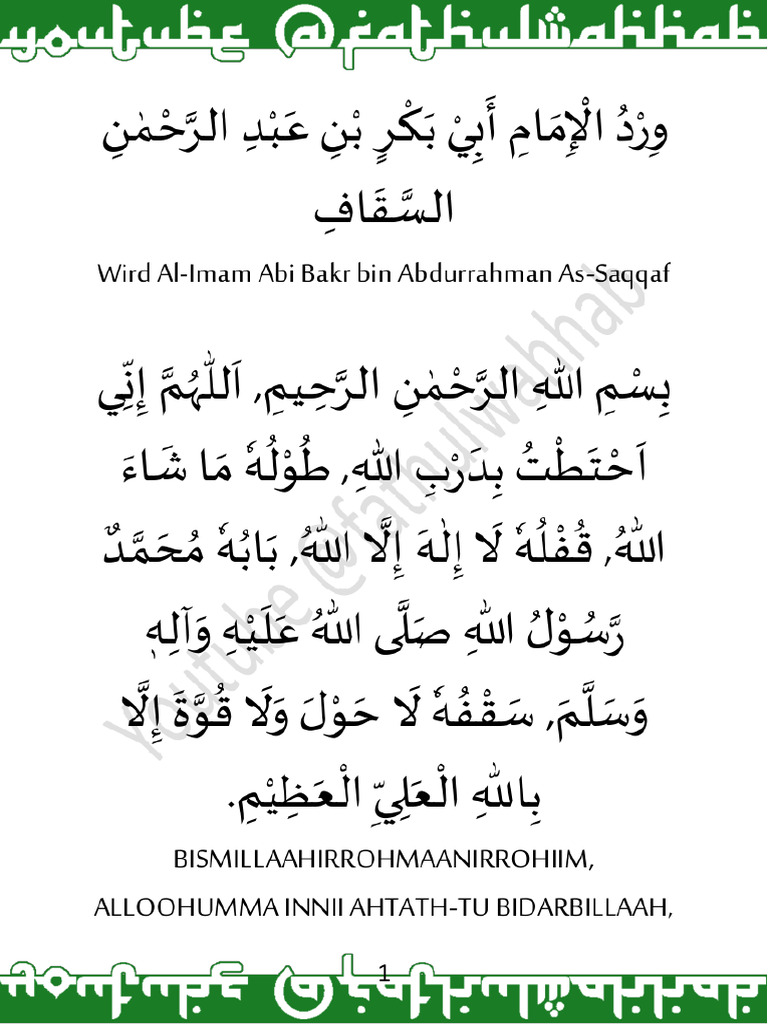 youtube @fathulwahhab
وِرْدُ الْإِمَامِ أَبِيْ بَكْرٍ بْنِ عَبْدِ الرَّحْمٰنِ
السَّقَافِ
Wird Al-Imam Abi Bakr bin Abdurrahman As-Saqqaf
بِسْمِ اللهِ الرَّحْمٰنِ الرَّحِيمِ, اَللّٰهُمَّ إِنِّي
اَحْتَطْتُ بِدَرْبِ اللهِ, طُوْلُهٗ مَا شَاءَ
اللهُ, قُفْلُهٗ لَا إِلٰهَ إِلَّا اللهُ, بَابُهٗ مُحَمَّدٌ
رَّسُوْلُ اللهِ صَلَّى اللهُ عَلَيْهِ وَآلِهٖ
وَسَلَّمَ, سَقْفُهٗ لَا حَوْلَ وَلَا قُوَّةَ إِلَّا
بِاللهِ الْعَلِيِّ الْعَظِيْمِ.
Youtube @fathulwahhab
BISMILLAAHIRROHMAANIRROHIIM,
ALLOOHUMMA INNII AHTATH-TU BIDARBILLAAH,
1
youtube @fathulwahhab